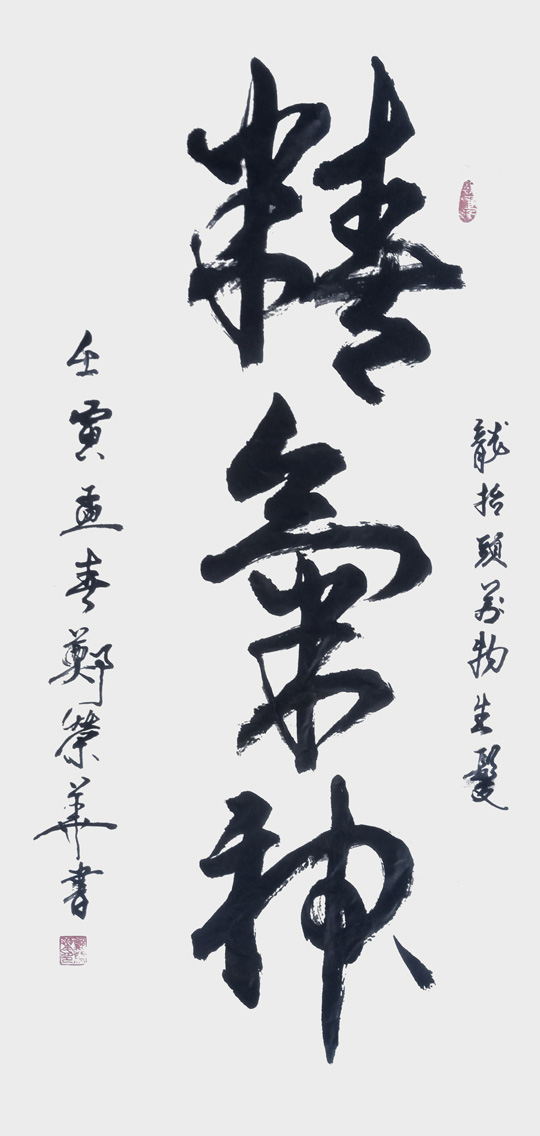 龍抬頭萬物生發
精氣神
壬寅孟春鄭榮華書